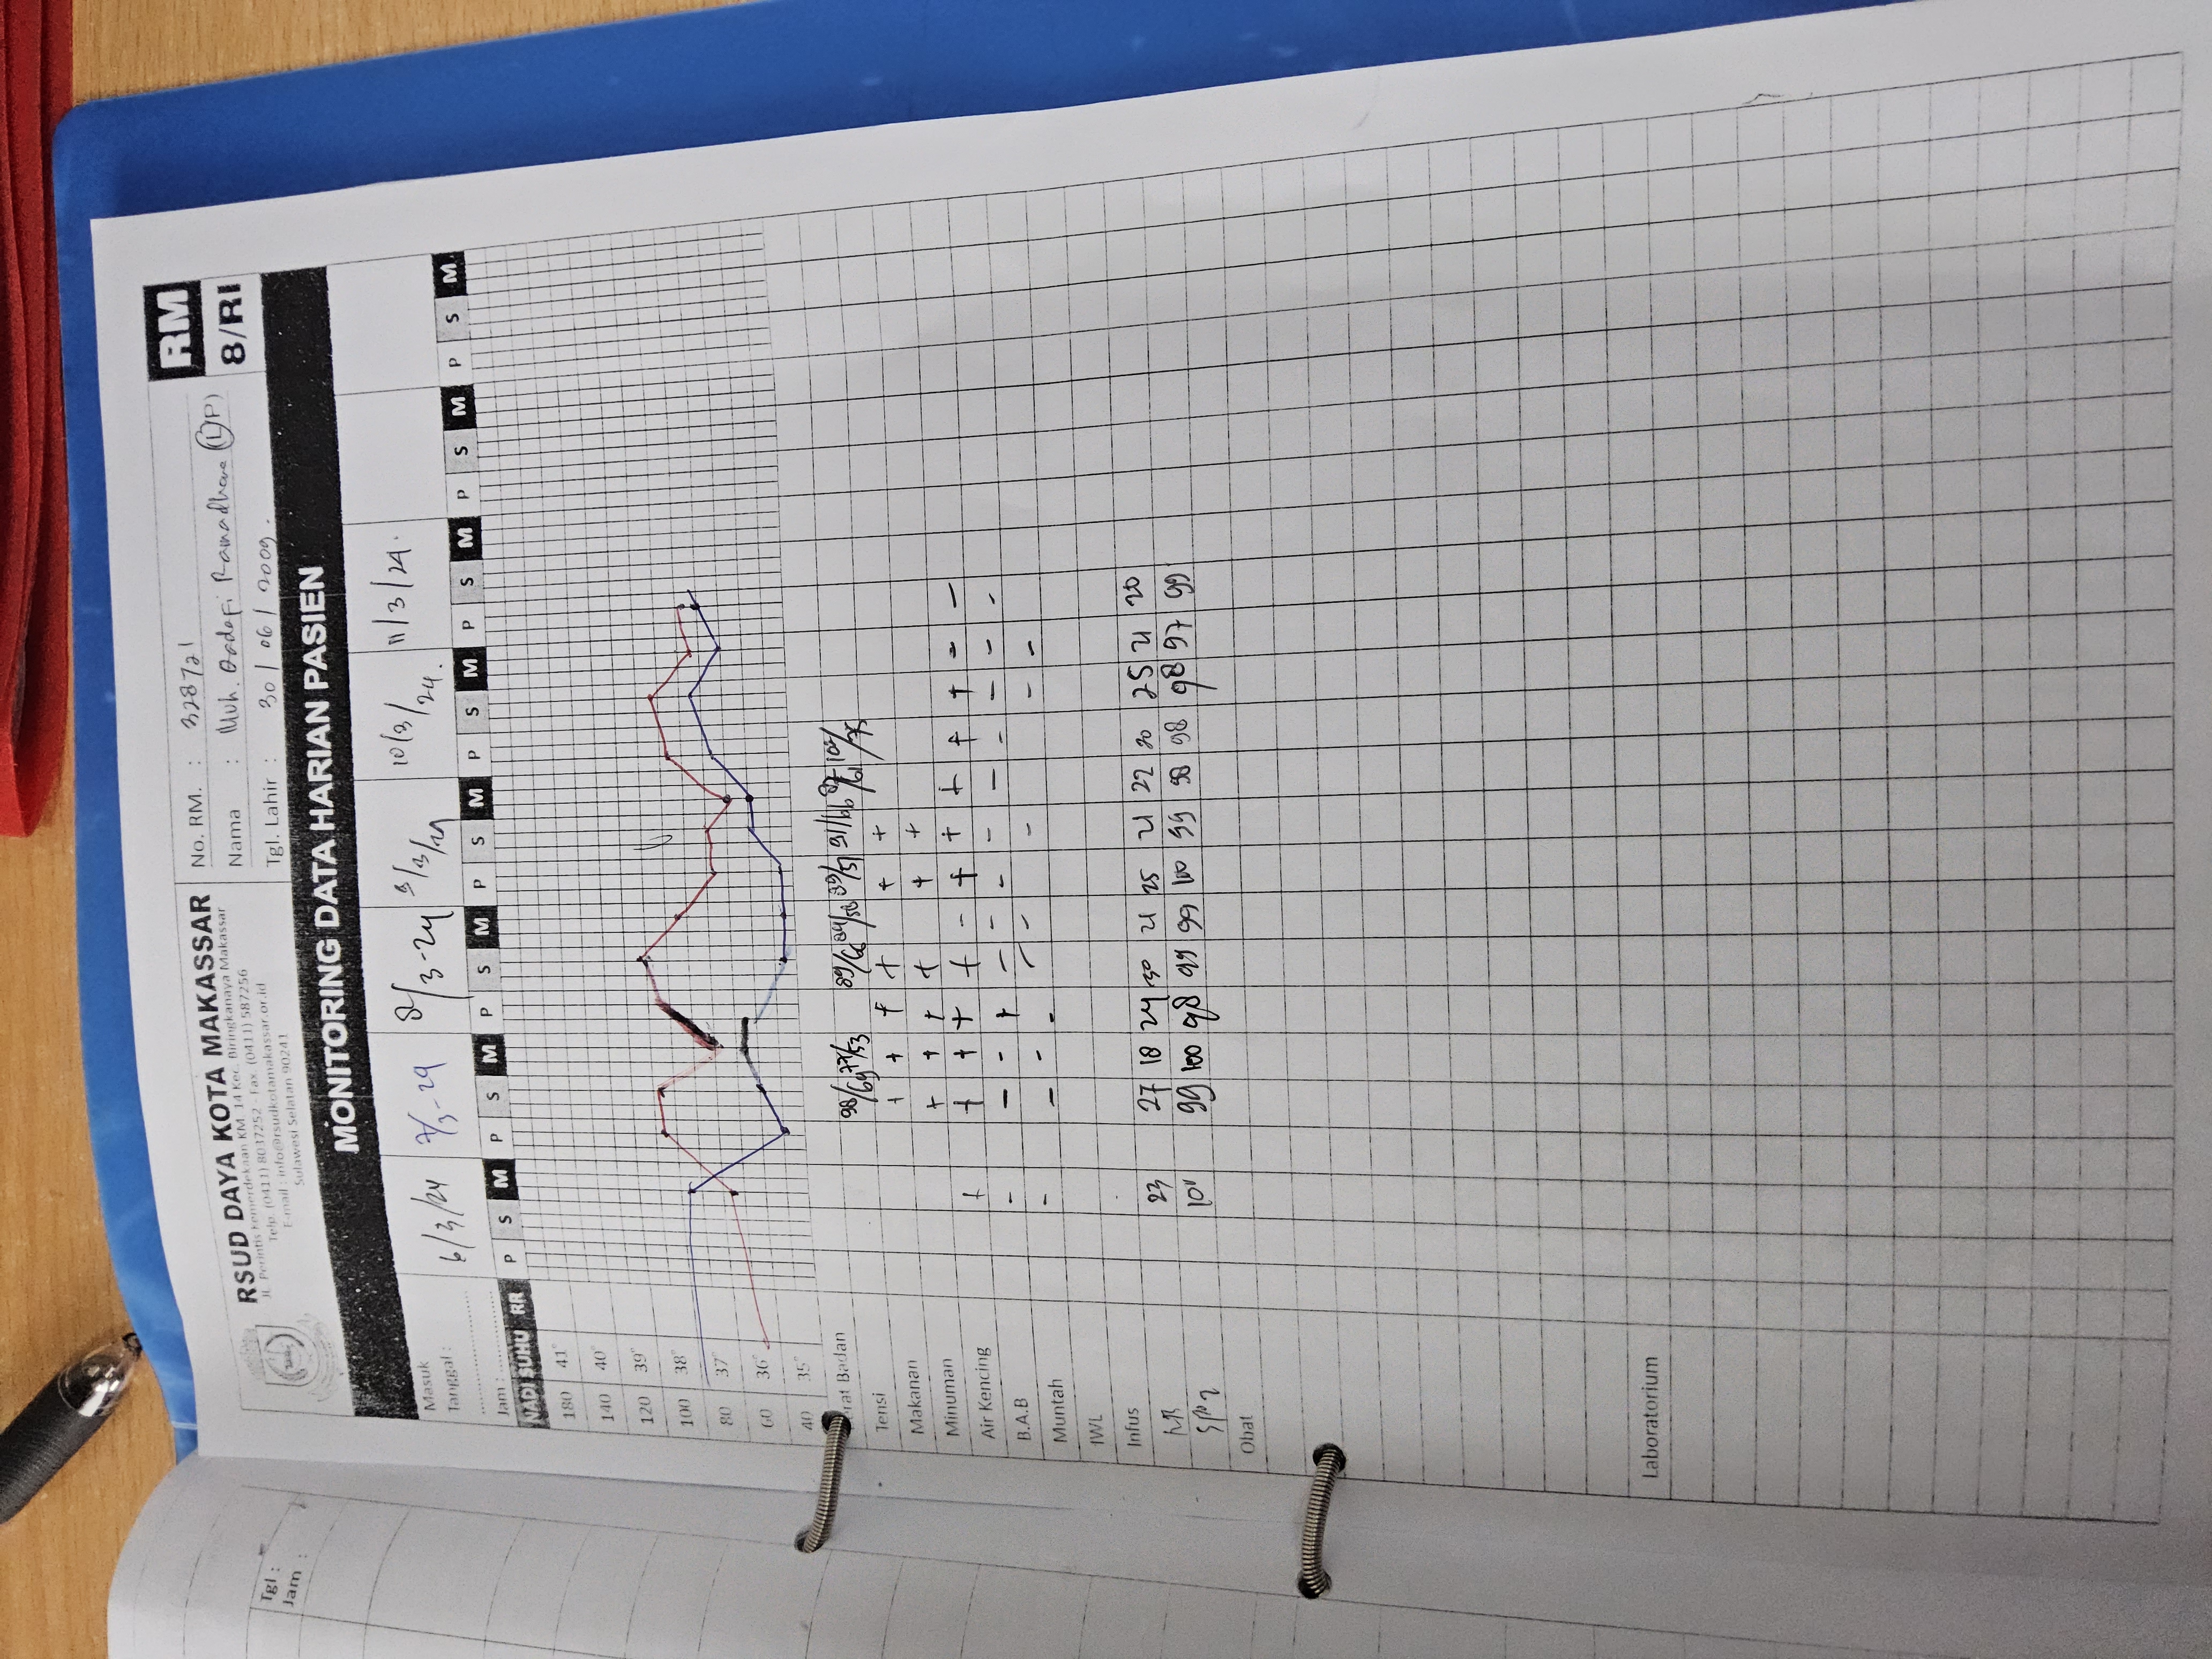 RSUD DAYA KOTA MAKASSAR
Jl. Perintis Kemerdekaan KM. 14 Kec. Biringkanaya Makassar
Telp. (0411) 8037252 - Fax. (0411) 587256
E-mail : info@rsudkotamakassar.or.id
Sulawesi Selatan 90241
No. RM. : 328721
Nama : Muh. Qadafi Ramadhan (L/P)
Tgl. Lahir : 30/06/2009.
RM
8/RI
MONITORING DATA HARIAN PASIEN
Masuk
Tanggal : 6/3/24 7/3-24 8/3-24 9/3/24 10/3/24. 11/3/24.
Jam :
P S M P S M P S M P S M P S M P S M P S M P S M
NADI SUHU RR
180 41°
140 40°
120 39°
100 38°
80 37°
60 36°
40 35°
Berat Badan
Tensi
Makanan + + + + + +
Minuman + + + + + +
Air Kencing + + + + + - + + + + + - -
B.A.B - - - + - - - - - - - - -
Muntah - - - - - - - - -
IWL
Infus
RR 23 27 18 24 30 21 25 21 22 20 25 21 20
SPO2 101 99 100 98 99 99 100 99 98 98 98 97 99
Obat
Laboratorium
Tgl :
Jam :